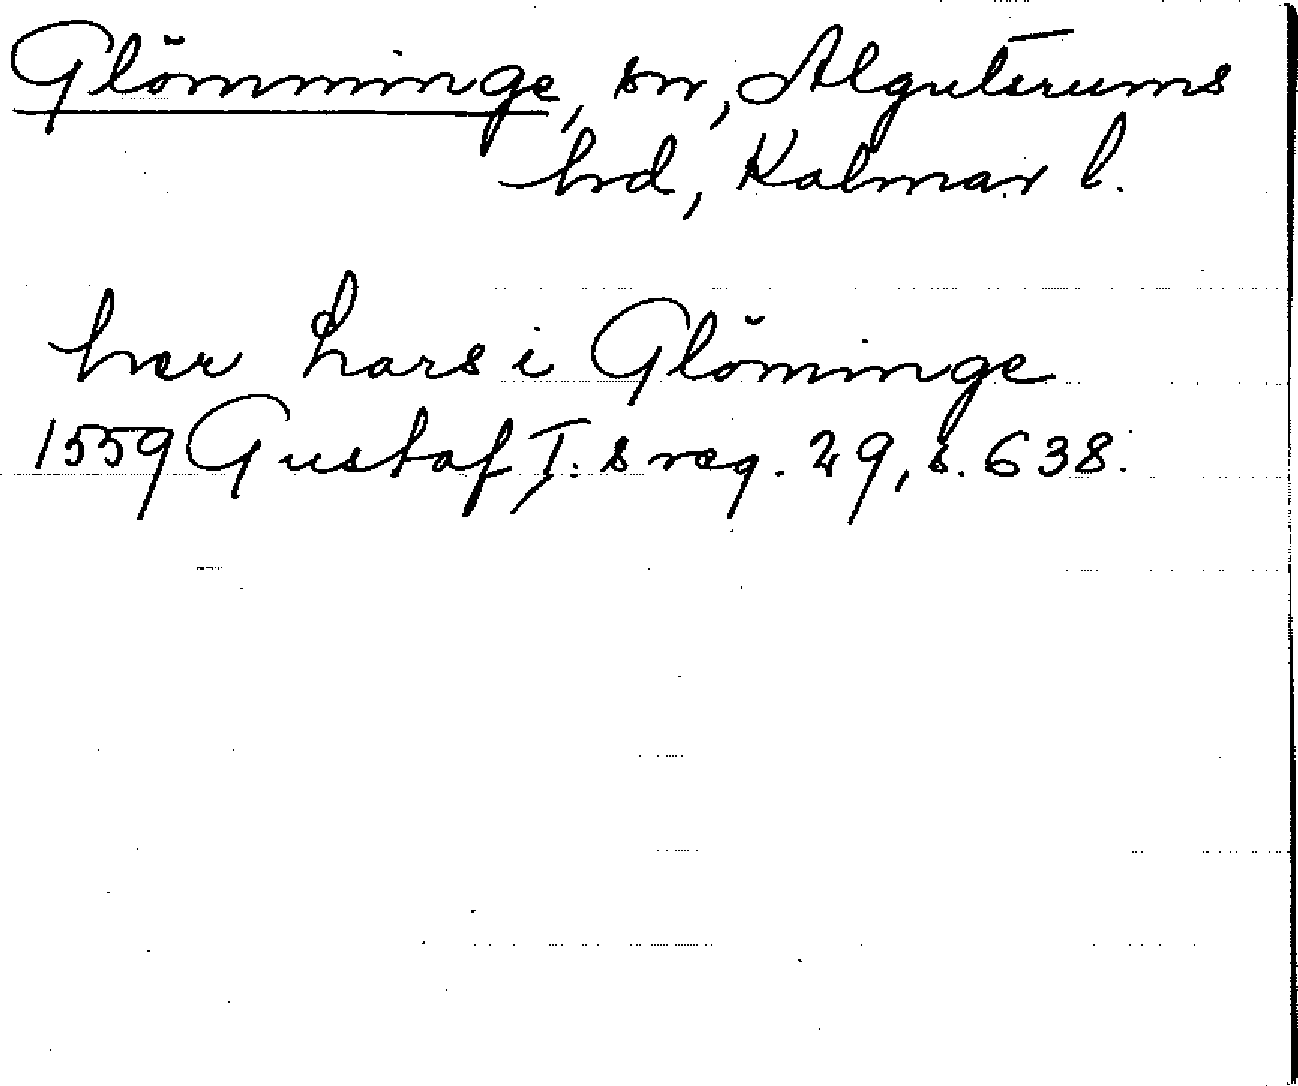 Glömminge, sn, Algutsrums
hd, Kalmar l.
her Lars i Glöminge
1559 Gustaf I:s reg. 29, s. 638.